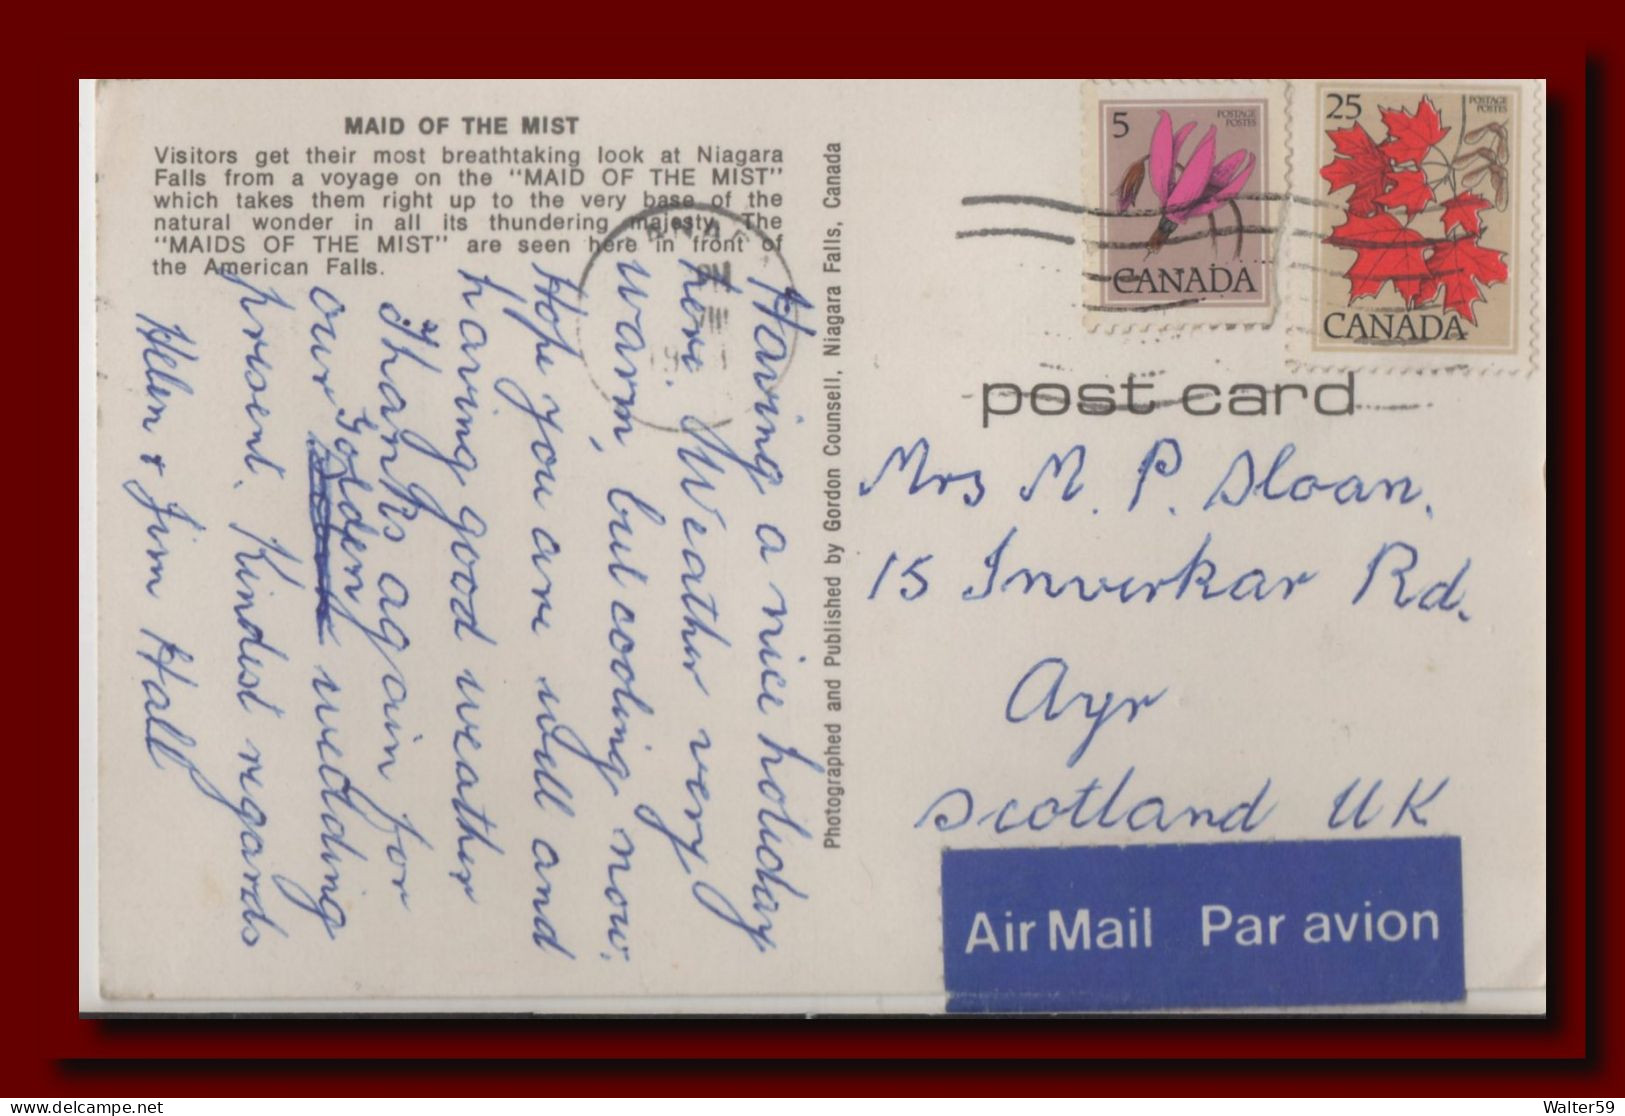 MAID OF THE MIST
Visitors get their most breathtaking look at Niagara
Falls from a voyage on the "MAID OF THE MIST"
which takes them right up to the very base of the
natural wonder in all its thundering majesty. The
"MAIDS OF THE MIST" are seen here in front of
the American Falls.
Having a nice holiday
here. Weather very
warm, but cooling now.
Hope you are well and
having good weather
Thanks again for
our Golden wedding
present. Kindest regards
Helen & Jim Hall
Photographed and Published by Gordon Counsell, Niagara Falls, Canada
PM
VIII
5
POSTAGE
POSTES
CANADA
25
POSTAGE
POSTES
CANADA
post card
Mrs M. P. Sloan.
15 Inverkar Rd.
Ayr
Scotland UK
Air Mail Par avion
Walter59